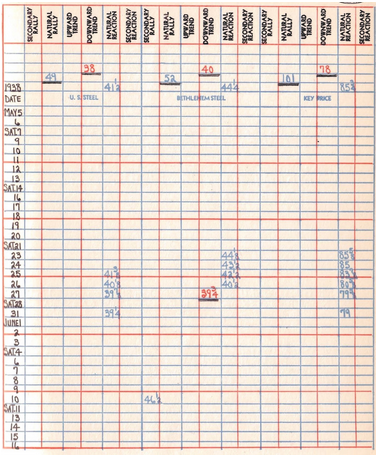 SECONDARY RALLY NATURAL RALLY UPWARD TREND DOWNWARD TREND NATURAL REACTION SECONDARY REACTION SECONDARY RALLY NATURAL RALLY UPWARD TREND DOWNWARD TREND NATURAL REACTION SECONDARY REACTION SECONDARY RALLY NATURAL RALLY UPWARD TREND DOWNWARD TREND NATURAL REACTION SECONDARY REACTION
38 40 78
49 52 101
1938 41½ 44¼
DATE U. S. STEEL BETHLEHEM STEEL KEY PRICE
MAY5
6
SAT.7
9
10
11
12
13
SAT.14
16
17
18
19
20
SAT.21
23
24 85
25
26
27
SAT.28
31 39¼ 79
JUNE1
2
3
SAT.4
6
7
8
9
10 46½
SAT.11
13
14
15
16